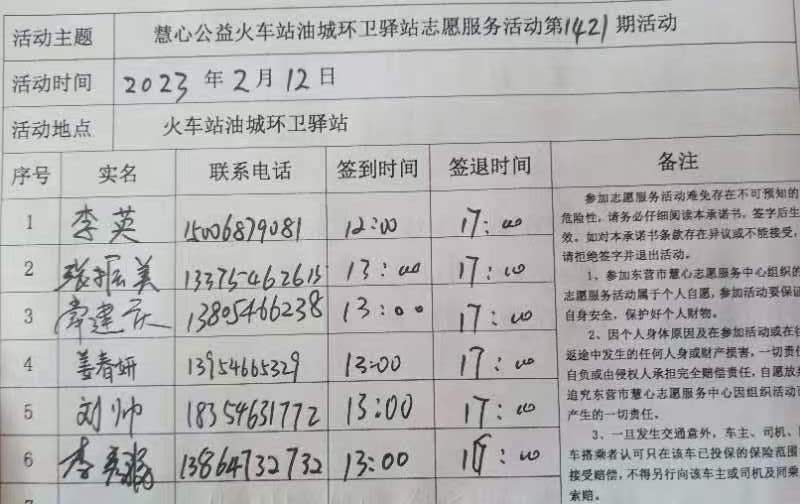 活动主题 慧心公益火车站油城环卫驿站志愿服务活动第1421期活动
活动时间 2023 年 2 月 12 日
活动地点 火车站油城环卫驿站
序号 实名 联系电话 签到时间 签退时间 备注
1 李英 15006879081 12:00 17:00
2 张振美 13375462615 13:00 17:00
3 常建庆 13805466238 13:00 17:00
4 姜春妍 13954665329 13:00 17:00
5 刘帅 18354631772 13:00 17:00
6 李 13864732732 13:00 :00
参加志愿服务活动难免存在不可预知的
危险性，请务必仔细阅读本承诺书，签字后生
效。如对本承诺书条款存在异议或不能接受，
请拒绝签字并退出活动。
1、参加东营市慧心志愿服务中心组织的
志愿服务活动属于个人自愿，参加活动要保证
自身安全，保护好个人财物。
2、因个人身体原因及在参加活动或在往
返途中发生的任何人身或财产损害，一切责
自负或由侵权人承担完全赔偿责任，自愿放弃
追究东营市慧心志愿服务中心因组织活动
产生的一切责任。
3、一旦发生交通意外，车主、司机、
车搭乘者认可只在该车已投保的保险范围
接受赔偿，不得另行向该车主或司机及同乘
索赔。